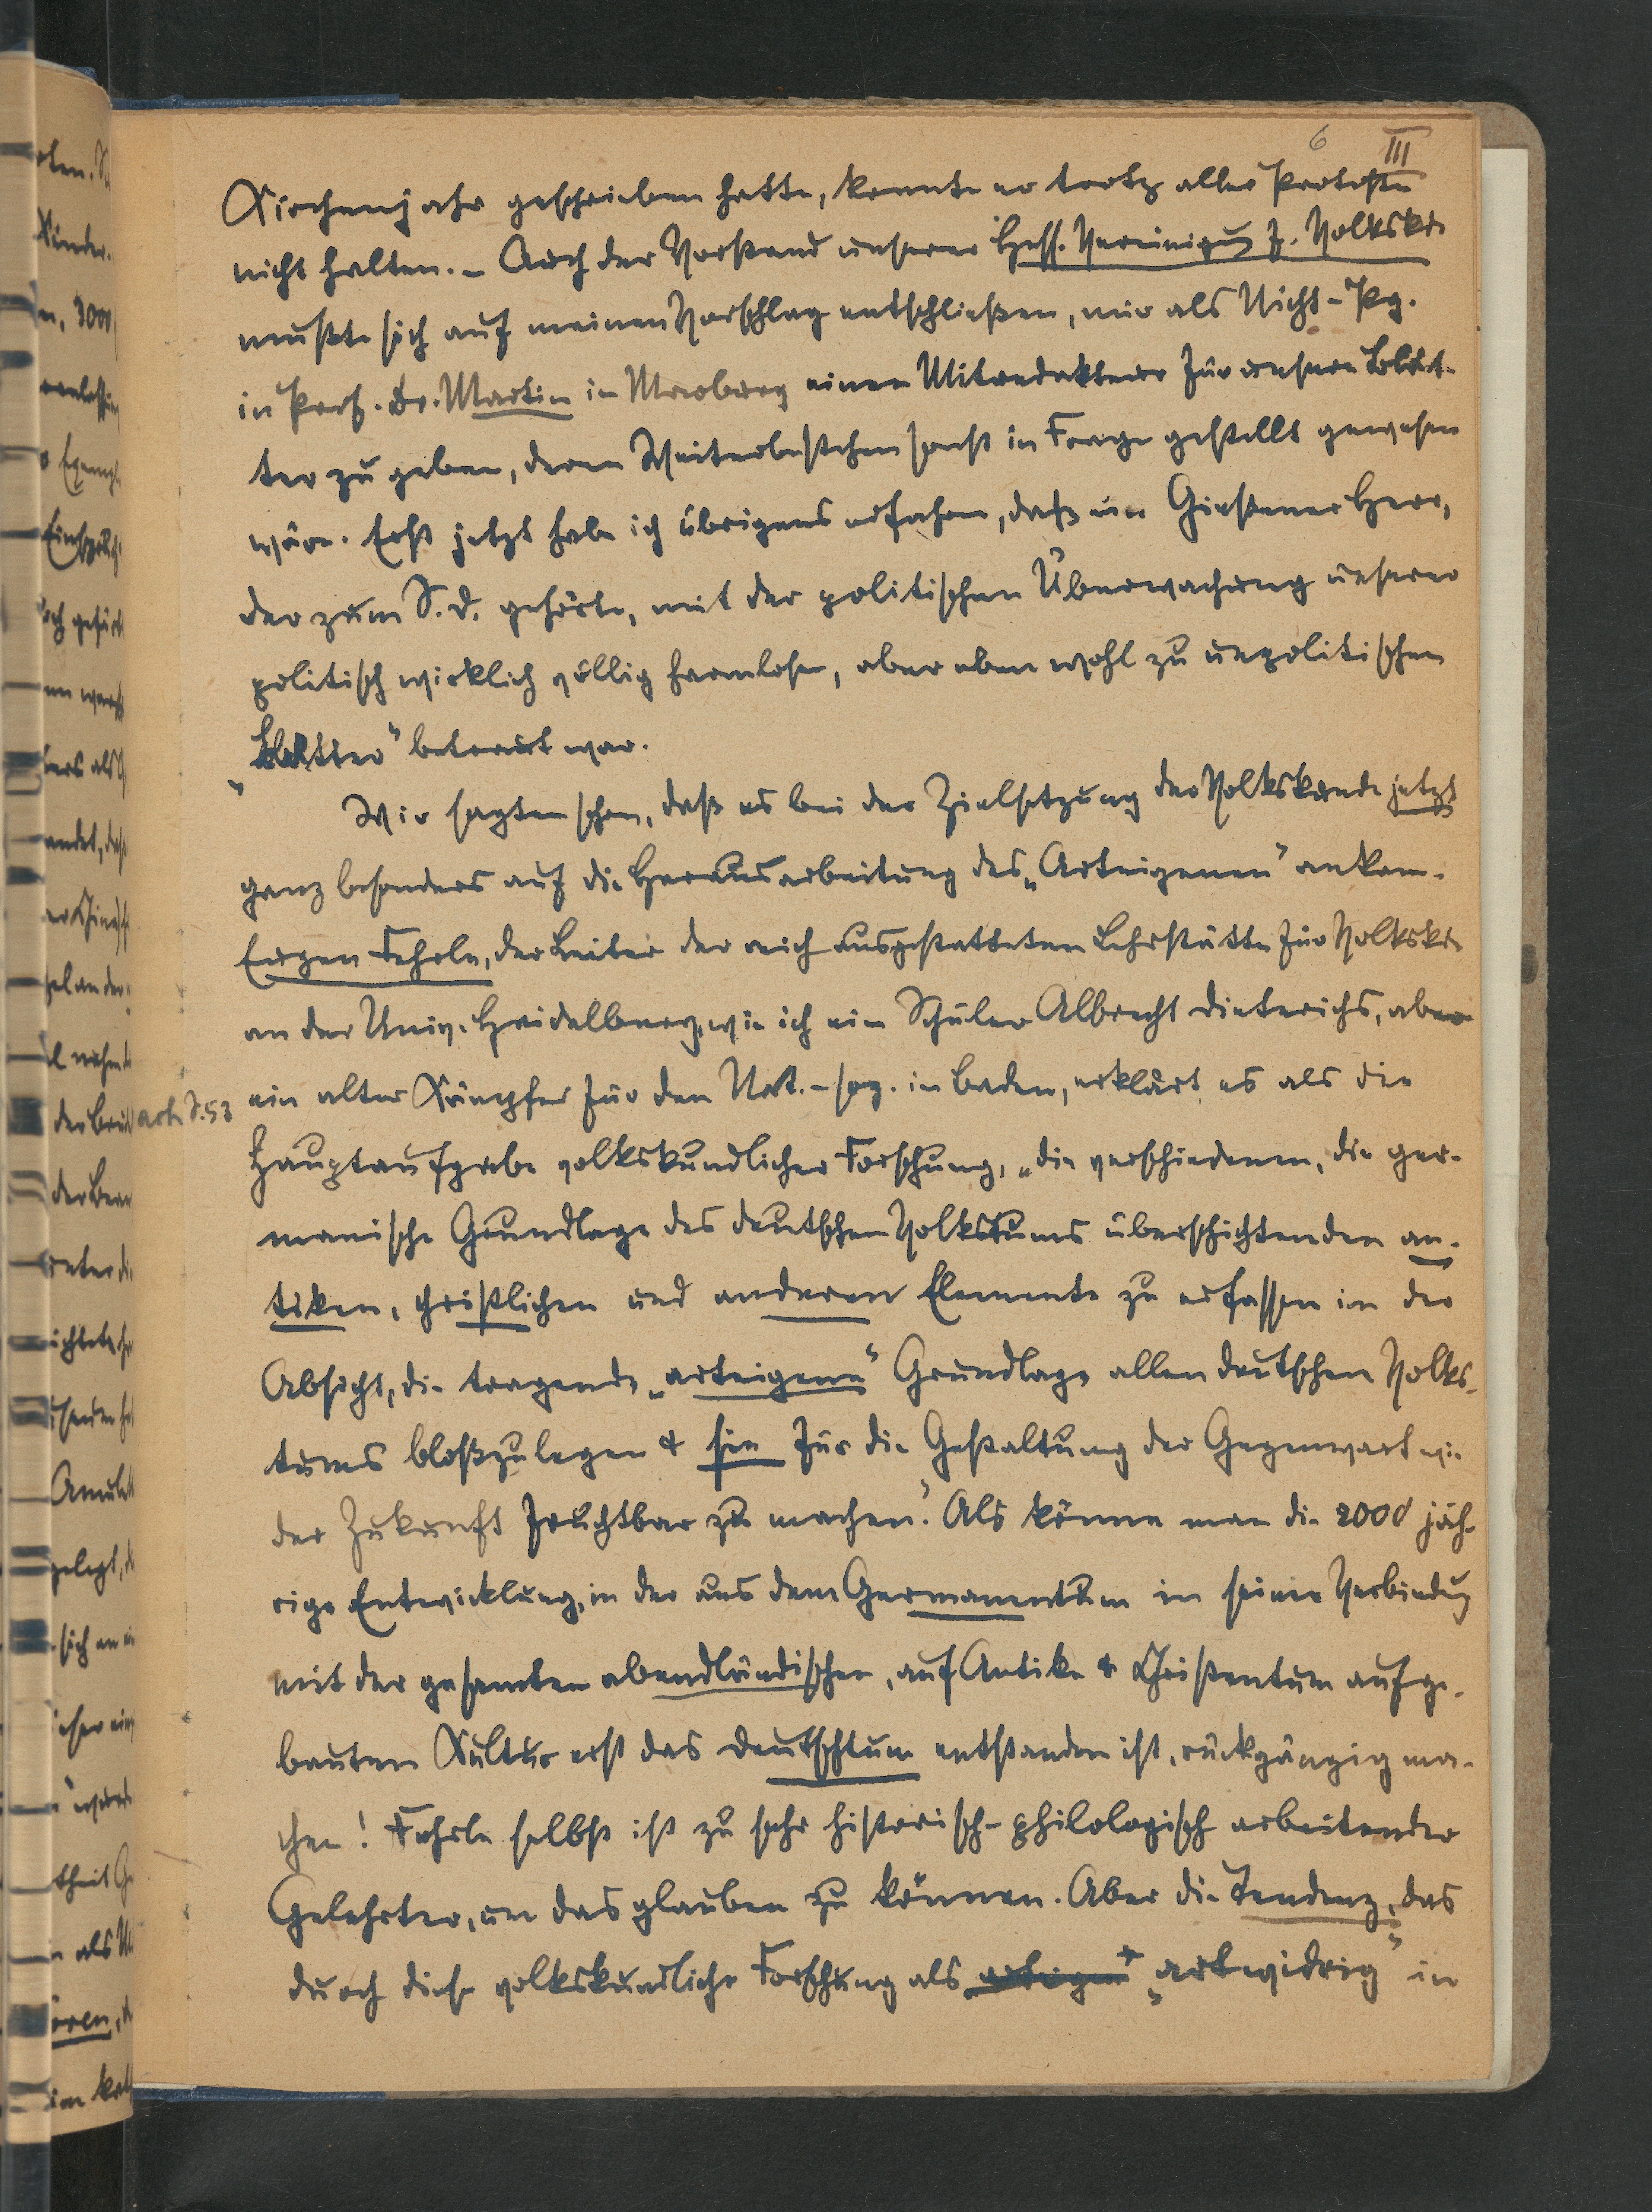 6 III
Kirchenjahr geschrieben hatte, konnte er trotz aller Proteste
nicht halten. – Auch der Vorstand unserer Hess. Vereinigung f. Volkskde
mußte sich auf meinen Vorschlag entschließen, mir als Nicht-Pg.
in Prof. Dr. Martin in Marburg einen Mitredakteur für unsere Blät-
ter zu geben, deren Weiterbestehen sonst in Frage gestellt gewesen
wäre. Erst jetzt habe ich übrigens erfahren, daß ein Giessener Herr,
der zum S.D. gehörte, mit der politischen Überwachung unserer
politisch wirklich völlig harmlosen, aber eben wohl zu unpolitischen
„Blätter“ betraut war.
Wir sagten schon, daß es bei der Zielsetzung der Volkskunde jetzt
ganz besonders auf die Herausarbeitung des „Arteigenen“ ankam.
Eugen Fehrle, der Leiter der reich ausgestatteten Lehrstätte für Volkskde
an der Univ. Heidelberg, wie ich ein Schüler Albrecht Dieterichs, aber
ein alter Kämpfer für den Nat.-soz. in Baden, erklärt es als die
Hauptaufgabe volkskundlicher Forschung, „die verschiedenen, die ger-
manische Grundlage des deutschen Volkstums überschichtenden an-
tiken, christlichen und anderen Elemente zu erfassen in der
Absicht, die tragende „arteigene“ Grundlage allen deutschen Volks-
tums bloßzulegen & sie für die Gestaltung der Gegenwart wie
der Zukunft fruchtbar zu machen.“ Als könne man die 2000 jäh-
rige Entwicklung, in der aus dem Germanentum in seiner Verbindung
mit der gesamten abendländischen, auf Antike & Christentum aufge-
bauten Kultur erst das Deutschtum entstanden ist, rückgängig ma-
chen! Fehrle selbst ist zu sehr historisch-philologisch arbeitender
Gelehrter, um das glauben zu können. Aber die Tendenz, das
durch diese volkskundliche Forschung als „artwidrig“ in